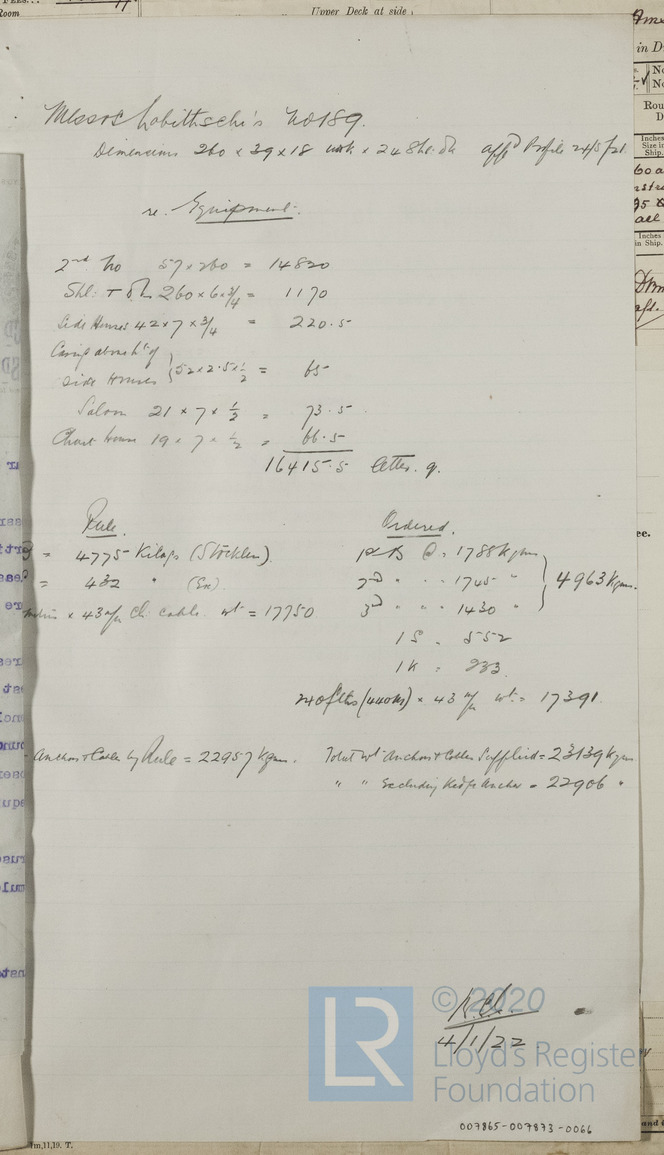 Upper Deck at side.
Messrs Lobithsche's No 189.
Dimensions 260 x 39 x 18 x 24 Profile 24/5/21.
re. Equipment.
2nd No 57 x 260 = 14820
260 x 6 x 3/4 = 1170
Side Houses 42 x 7 x 3/4 = 220.5
Casing above ht of
side Houses } 52 x 2.5 x 1/2 = 65
Saloon 21 x 7 x 1/2 = 73.5
Chart House 19 x 7 x 1/2 = 66.5
16415.5 letter. q.
Rule.
= 4775 Kilogs (Stockless)
= 432 " (Sn).
x 43 m/m Ch. cable wt = 17750
Ordered.
1st B @ = 1788 Kgms
2nd " . . 1745 "
3rd " . " 1430 "
} 4963 Kgms.
1 S . 552
1 K . 233
240 fths (440m) x 43 m/m wt. = 17391
Anchors + Cables by Rule = 22957 Kgms.
Total wt Anchors + Cables Supplied = 23139 Kgms
" " Excluding Kedge Anchor = 22906 "
4/1/22
© 2020
LR
Lloyd's Register
Foundation
007865-007873-0066
1m,11,19. T.